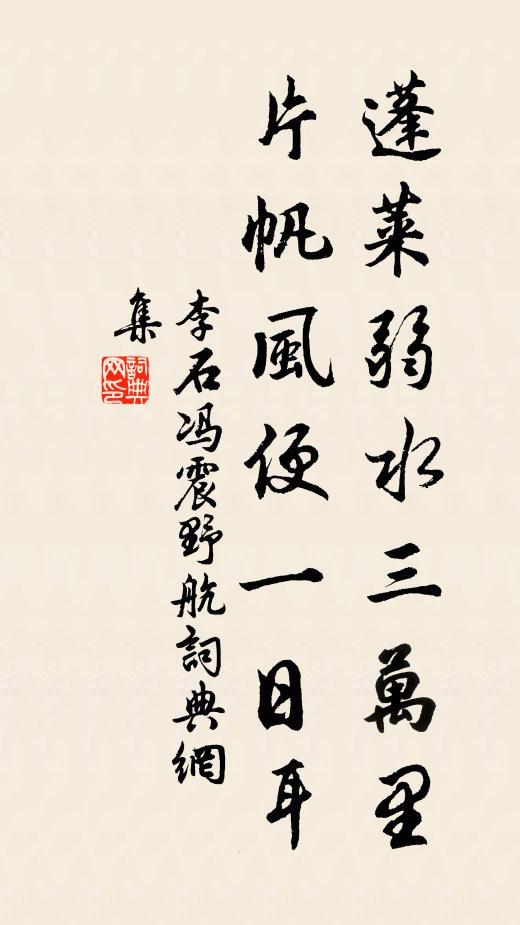 蓬萊弱水三萬里
片帆風便一日耳
李石冯震野航詞典網
集
詞典網印